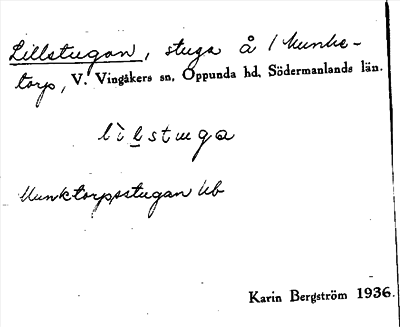 Lillstugan, stuga å 1 Munke-
torp, V. Vingåkers sn, Oppunda hd, Södermanlands län.
lìlstuga
Munktorpsstugan Ub
Karin Bergström 1936.